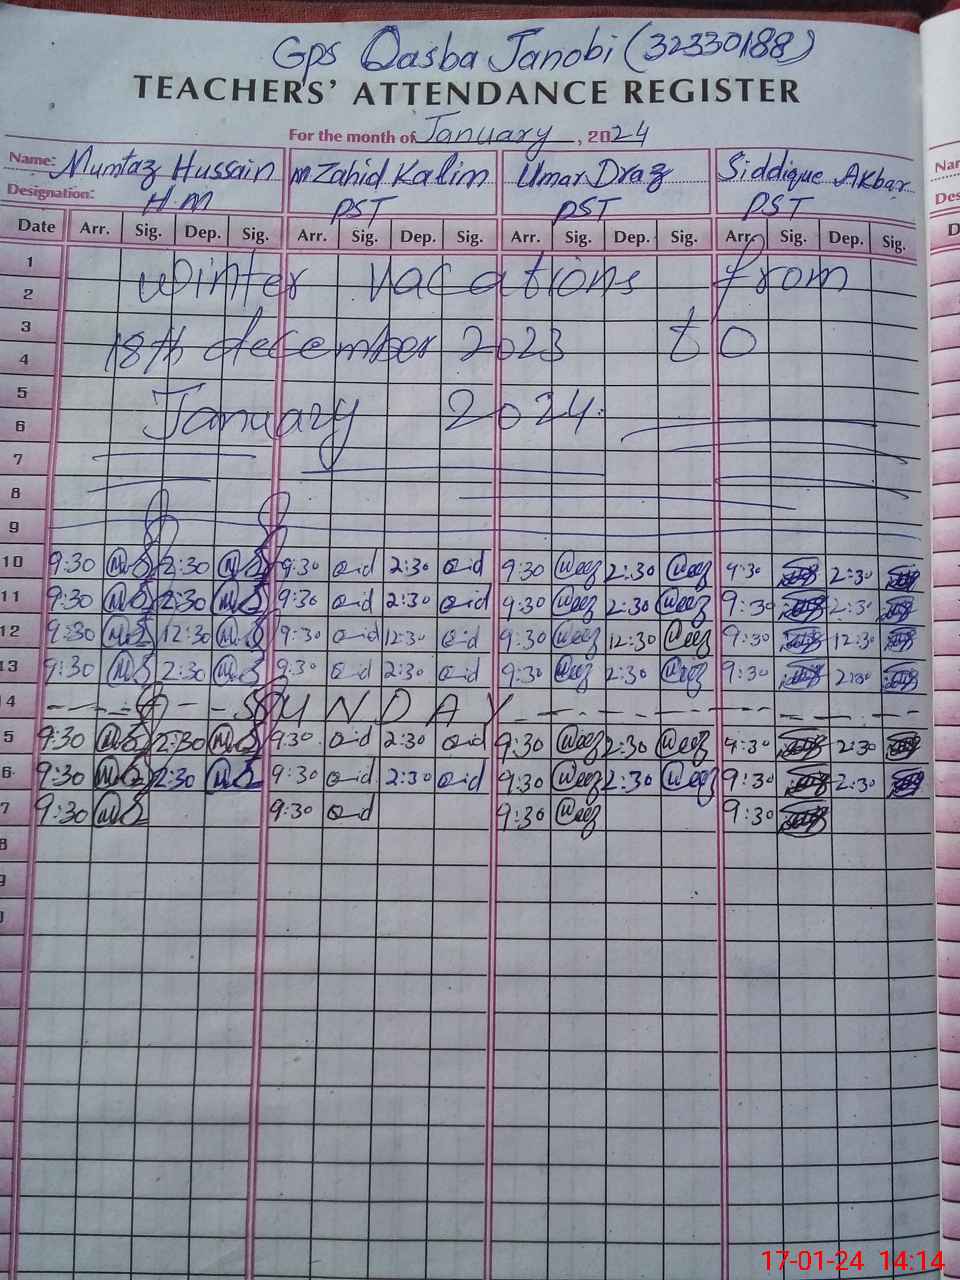 Gps Qasba Janobi (32330188)
TEACHERS' ATTENDANCE REGISTER
For the month of January, 2024
Name: Mumtaz Hussain M Zahid Kalim Umar Draz Siddique Akbar
Designation: H M PST PST PST
Date Arr. Sig. Dep. Sig. Arr. Sig. Dep. Sig. Arr. Sig. Dep. Sig. Arr. Sig. Dep. Sig.
1
Winter vacations from
2
3
18th december 2023 to
4
5
January 2024.
6
7
8
9
10 9:30 2:30 9:30 2:30 9:30 2:30 9:30 2:30
11 9:30 2:30 9:30 2:30 9:30 2:30 9:30 2:30
12 9:30 12:30 9:30 12:30 9:30 12:30 9:30 12:30
13 9:30 2:30 9:30 2:30 9:30 2:30 9:30 2:30
4 SUNDAY
5 9:30 2:30 9:30 2:30 9:30 2:30 9:30 2:30
6 9:30 2:30 9:30 2:30 9:30 2:30 9:30 2:30
7 9:30 9:30 9:30 9:30
8
9
17-01-24 14:14